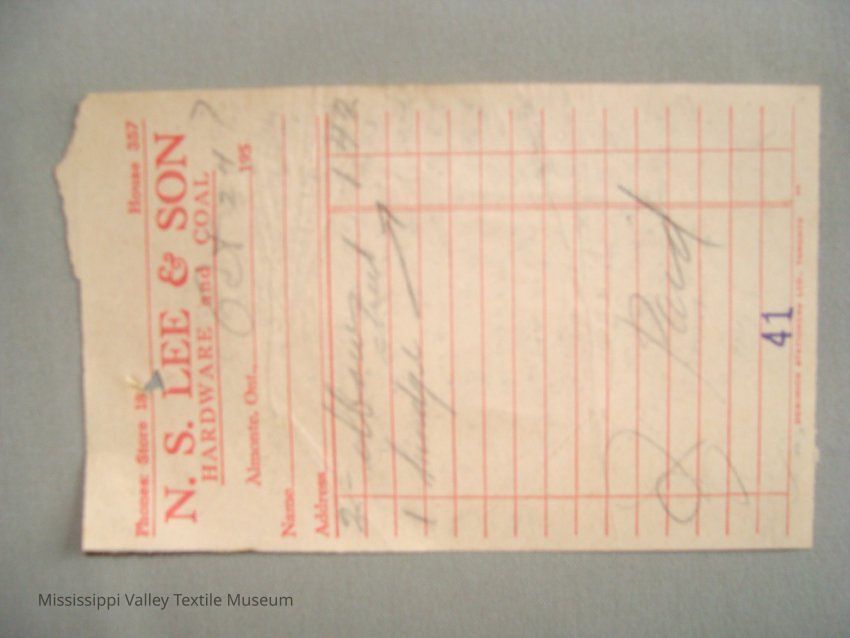 Phones: Store 18 House 357
N. S. LEE & SON
HARDWARE and COAL
Almonte, Ont., Oct 24 195 7
Name
Address
2 - elbows 1 42
1
Paid
41
Mississippi Valley Textile Museum